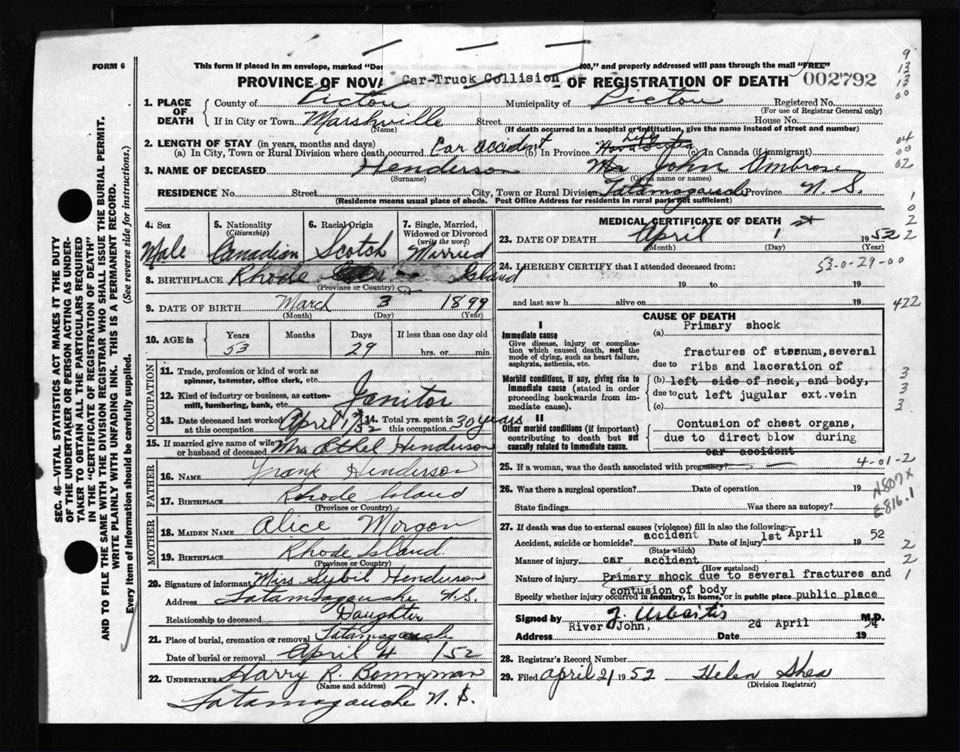 FORM 6
This form if placed in an envelope, marked "Dom and properly addressed will pass through the mail "FREE"
PROVINCE OF NOVA Car-Truck Collision OF REGISTRATION OF DEATH 002792
1. PLACE OF DEATH County of Pictou Municipality of Pictou Registered No. (For use of Registrar General only)
If in City or Town Marshville (Name) Street House No.
(If death occurred in a hospital or institution, give the name instead of street and number)
2. LENGTH OF STAY (in years, months and days)
(a) In City, Town or Rural Division where death occurred Car accident (b) In Province Life Nova Scotia (c) In Canada (if immigrant)
3. NAME OF DECEASED Henderson (Surname) Mr John Ambrose (Given name or names)
RESIDENCE No. Street City, Town or Rural Division Tatamagouche Province N. S.
(Residence means usual place of abode. Post Office Address for residents in rural parts not sufficient)
4. Sex Male
5. Nationality (Citizenship) Canadian
6. Racial Origin Scotch
7. Single, Married, Widowed or Divorced (write the word) Married
8. BIRTHPLACE Rhode Island (Province or Country)
9. DATE OF BIRTH March (Month) 3 (Day) 1899 (Year)
10. AGE in Years 53 Months Days 29 If less than one day old hrs. or min
OCCUPATION
11. Trade, profession or kind of work as spinner, teamster, office clerk, etc.
12. Kind of industry or business, as cotton-mill, lumbering, bank, etc. Janitor
13. Date deceased last worked at this occupation April 1/52 14. Total yrs. spent in this occupation 30 years
15. If married give name of wife or husband of deceased Mrs Ethel Henderson
FATHER
16. NAME Frank Henderson
17. BIRTHPLACE Rhode Island (Province or Country)
MOTHER
18. MAIDEN NAME Alice Morgan
19. BIRTHPLACE Rhode Island (Province or Country)
20. Signature of informant Miss Sybil Henderson
Address Tatamagouche N.S.
Relationship to deceased Daughter
21. Place of burial, cremation or removal Tatamagouche
Date of burial or removal April 4 1952
22. UNDERTAKER Harry R. Bonnyman (Name and address)
Tatamagouche N. S.
MEDICAL CERTIFICATE OF DEATH
23. DATE OF DEATH April (Month) 1st (Day) 1952 (Year)
24. I HEREBY CERTIFY that I attended deceased from: 53-0-29-00
19 to 19
and last saw h alive on 19
CAUSE OF DEATH
I
Immediate cause
Give disease, injury or complication which caused death, not the mode of dying, such as heart failure, asphyxia, asthenia, etc.
Morbid conditions, if any, giving rise to immediate cause (stated in order proceeding backwards from immediate cause).
II
Other morbid conditions (if important) contributing to death but not causally related to immediate cause.
(a) Primary shock
due to fractures of sternum, several ribs and laceration of
(b) left side of neck, and body,
due to cut left jugular ext.vein
(c)
Contusion of chest organs,
due to direct blow during
car accident
25. If a woman, was the death associated with pregnancy?
26. Was there a surgical operation? Date of operation 19
State findings Was there an autopsy?
27. If death was due to external causes (violence) fill in also the following:
Accident, suicide or homicide? accident (State which) Date of injury 1st April 1952
Manner of injury car accident (How sustained)
Nature of injury Primary shock due to several fractures and contusion of body
Specify whether injury occurred in industry, in home, or in public place public place
Signed by J. Urbaitis M.D.
Address River John, Date 2d April 19
28. Registrar's Record Number
29. Filed April 21 1952 Helen Shea (Division Registrar)
SEC. 46—VITAL STATISTICS ACT MAKES IT THE DUTY OF THE UNDERTAKER OR PERSON ACTING AS UNDERTAKER TO OBTAIN ALL THE PARTICULARS REQUIRED IN THE "CERTIFICATE OF REGISTRATION OF DEATH" AND TO FILE THE SAME WITH THE DIVISION REGISTRAR WHO SHALL ISSUE THE BURIAL PERMIT.
WRITE PLAINLY WITH UNFADING INK. THIS IS A PERMANENT RECORD.
Every item of information should be carefully supplied. (See reverse side for instructions.)
9
13
13
00
04
00
02
1
0
2
2
422
3
3
3
4-01-2
N807X
E-816.1
2
2
1